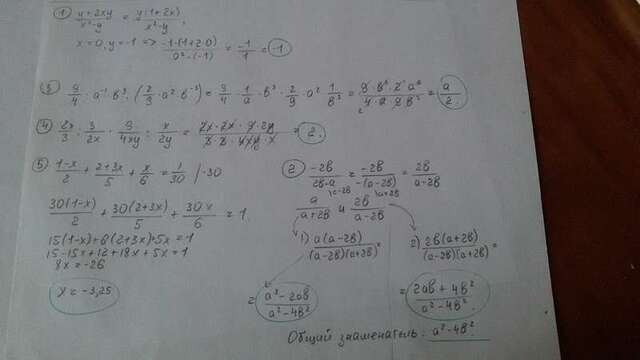 1) (y+2xy)/(x²-y) = y(1+2x)/(x²-y) ;
x=0, y=-1 => -1·(1+2·0)/(0²-(-1)) = -1/1 = -1
3) 9/4 · a⁻¹ · b³ · (2/9 · a² · b⁻³) = 9/4 · 1/a · b³ · 2/9 · a² · 1/b³ = = a/2.
4) 2x/3 · 3/2x · 9/4xy : x/2y = = 2.
5) (1-x)/2 + (2+3x)/5 + x/6 = 1/30 / ·30
30(1-x)/2 + 30(2+3x)/5 + 30x/6 = 1.
15(1-x)+6(2+3x)+5x=1
15-15x+12+18x+5x=1
8x = -26
x = -3,25
2) -2b/(2b-a) = -2b/(-(a-2b)) = 2b/(a-2b)
a/(a+2b) \a-2b и 2b/(a-2b) \a+2b
1) a(a-2b)/((a-2b)(a+2b)) =
= (a²-2ab)/(a²-4b²)
2) 2b(a+2b)/((a-2b)(a+2b)) =
= (2ab+4b²)/(a²-4b²)
Общий знаменатель: a²-4b².